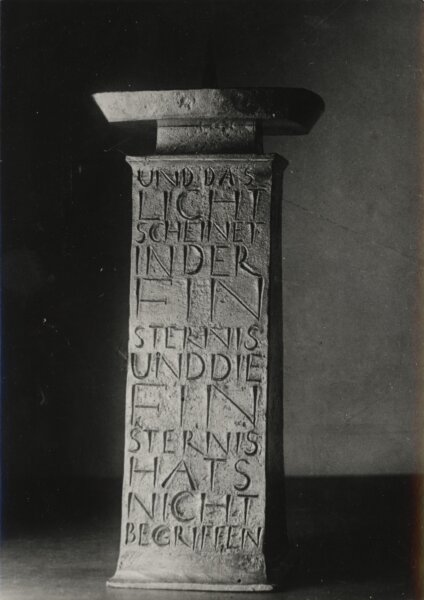 UND DAS
LICHT
SCHEINET
IN DER
FIN
STERNIS
UND DIE
FIN
STERNIS
HATS
NICHT
BEGRIFFEN